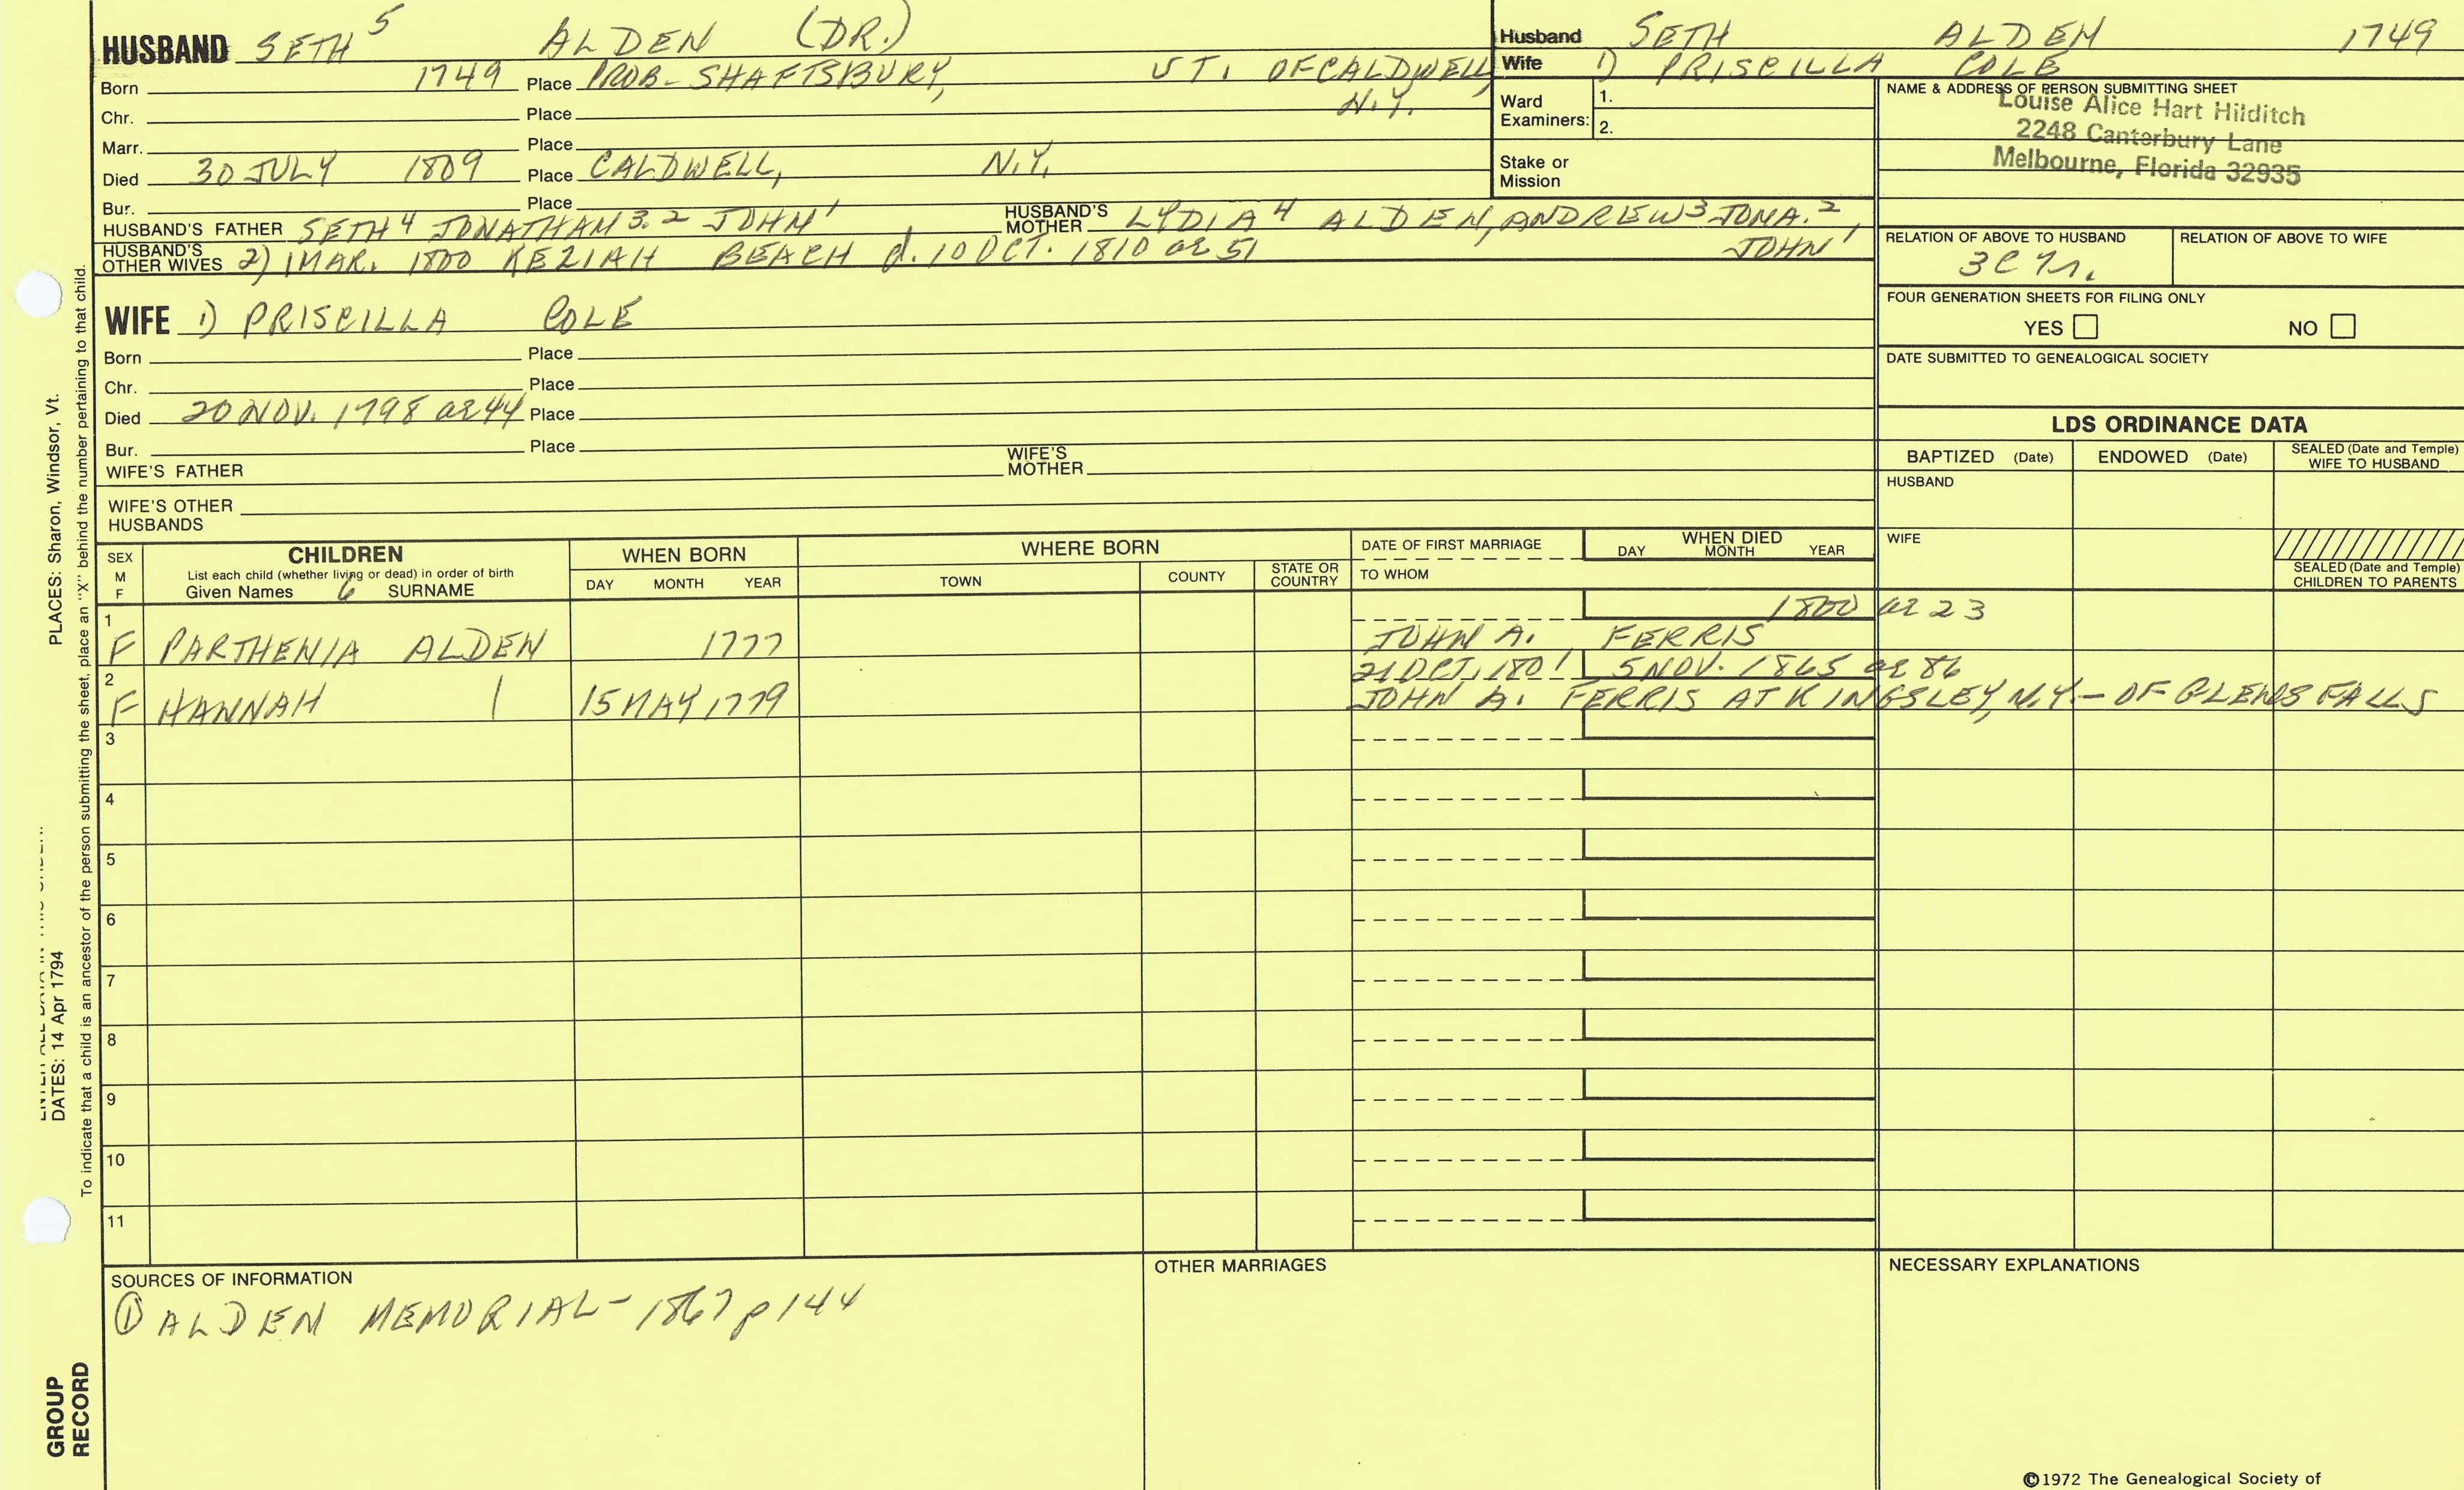 HUSBAND SETH 5 ALDEN (DR.)
Born 1749 Place PROB- SHAFTSBURY, VT. OF CALDWELL, N.Y.
Chr. Place
Marr. Place
Died 30 JULY 1809 Place CALDWELL, N.Y.
Bur. Place
HUSBAND'S FATHER SETH 4 JONATHAN 3. 2 JOHN 1
HUSBAND'S MOTHER LYDIA 4 ALDEN, ANDREW 3 JONA. 2, JOHN 1
HUSBAND'S OTHER WIVES 2) 1 MAR. 1800 KEZIAH BEACH d. 10 OCT. 1810 ae 51
WIFE 1) PRISCILLA COLE
Born Place
Chr. Place
Died 20 NOV. 1798 ae 44 Place
Bur. Place
WIFE'S FATHER WIFE'S MOTHER
WIFE'S OTHER HUSBANDS
Husband SETH ALDEN 1749
Wife 1) PRISCILLA COLE
Ward Examiners: 1.
2.
Stake or Mission
NAME & ADDRESS OF PERSON SUBMITTING SHEET
Louise Alice Hart Hilditch
2248 Canterbury Lane
Melbourne, Florida 32935
RELATION OF ABOVE TO HUSBAND RELATION OF ABOVE TO WIFE
FOUR GENERATION SHEETS FOR FILING ONLY
YES NO
DATE SUBMITTED TO GENEALOGICAL SOCIETY
LDS ORDINANCE DATA
BAPTIZED (Date) ENDOWED (Date) SEALED (Date and Temple) WIFE TO HUSBAND
HUSBAND
WIFE
SEALED (Date and Temple) CHILDREN TO PARENTS
SEX M F
CHILDREN
List each child (whether living or dead) in order of birth
Given Names 6 SURNAME
WHEN BORN
DAY MONTH YEAR
WHERE BORN
TOWN COUNTY STATE OR COUNTRY
DATE OF FIRST MARRIAGE
TO WHOM
WHEN DIED
DAY MONTH YEAR
1 1800 ae 23
F PARTHENIA ALDEN 1777 JOHN A. FERRIS
2 21 OCT, 1801 5 NOV. 1865 ae 86
F HANNAH | 15 MAY 1779 JOHN A. FERRIS AT KINGSLEY, N.Y.- OF GLENS FALLS
3
4
5
6
7
8
9
10
11
SOURCES OF INFORMATION
① ALDEN MEMORIAL- 1867 p 144
OTHER MARRIAGES
NECESSARY EXPLANATIONS
©1972 The Genealogical Society of
DATES: 14 Apr 1794
PLACES: Sharon, Windsor, Vt.
To indicate that a child is an ancestor of the person submitting the sheet, place an "X" behind the number pertaining to that child.
GROUP
RECORD